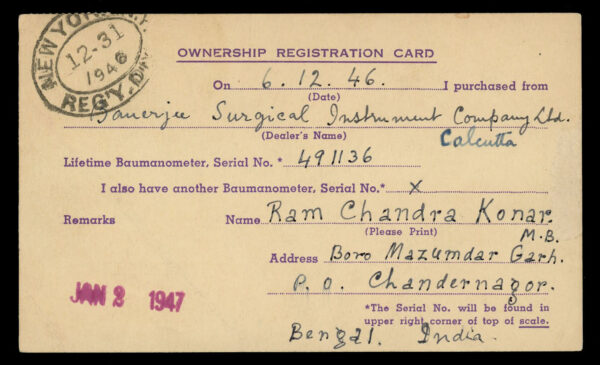 NEW YORK, N.Y.
12-31
1946
REG'Y. DIV.
OWNERSHIP REGISTRATION CARD
On 6.12.46. I purchased from
(Date)
Banerjee Surgical Instrument Company Ltd.
(Dealer's Name)
Calcutta
Lifetime Baumanometer, Serial No.* 491136
I also have another Baumanometer, Serial No.* x
Remarks Name Ram Chandra Konar.
(Please Print) M.B.
Address Boro Mazumdar Garh.
P.O. Chandernagor.
JAN 2 1947
*The Serial No. will be found in
upper right corner of top of scale.
Bengal. India.